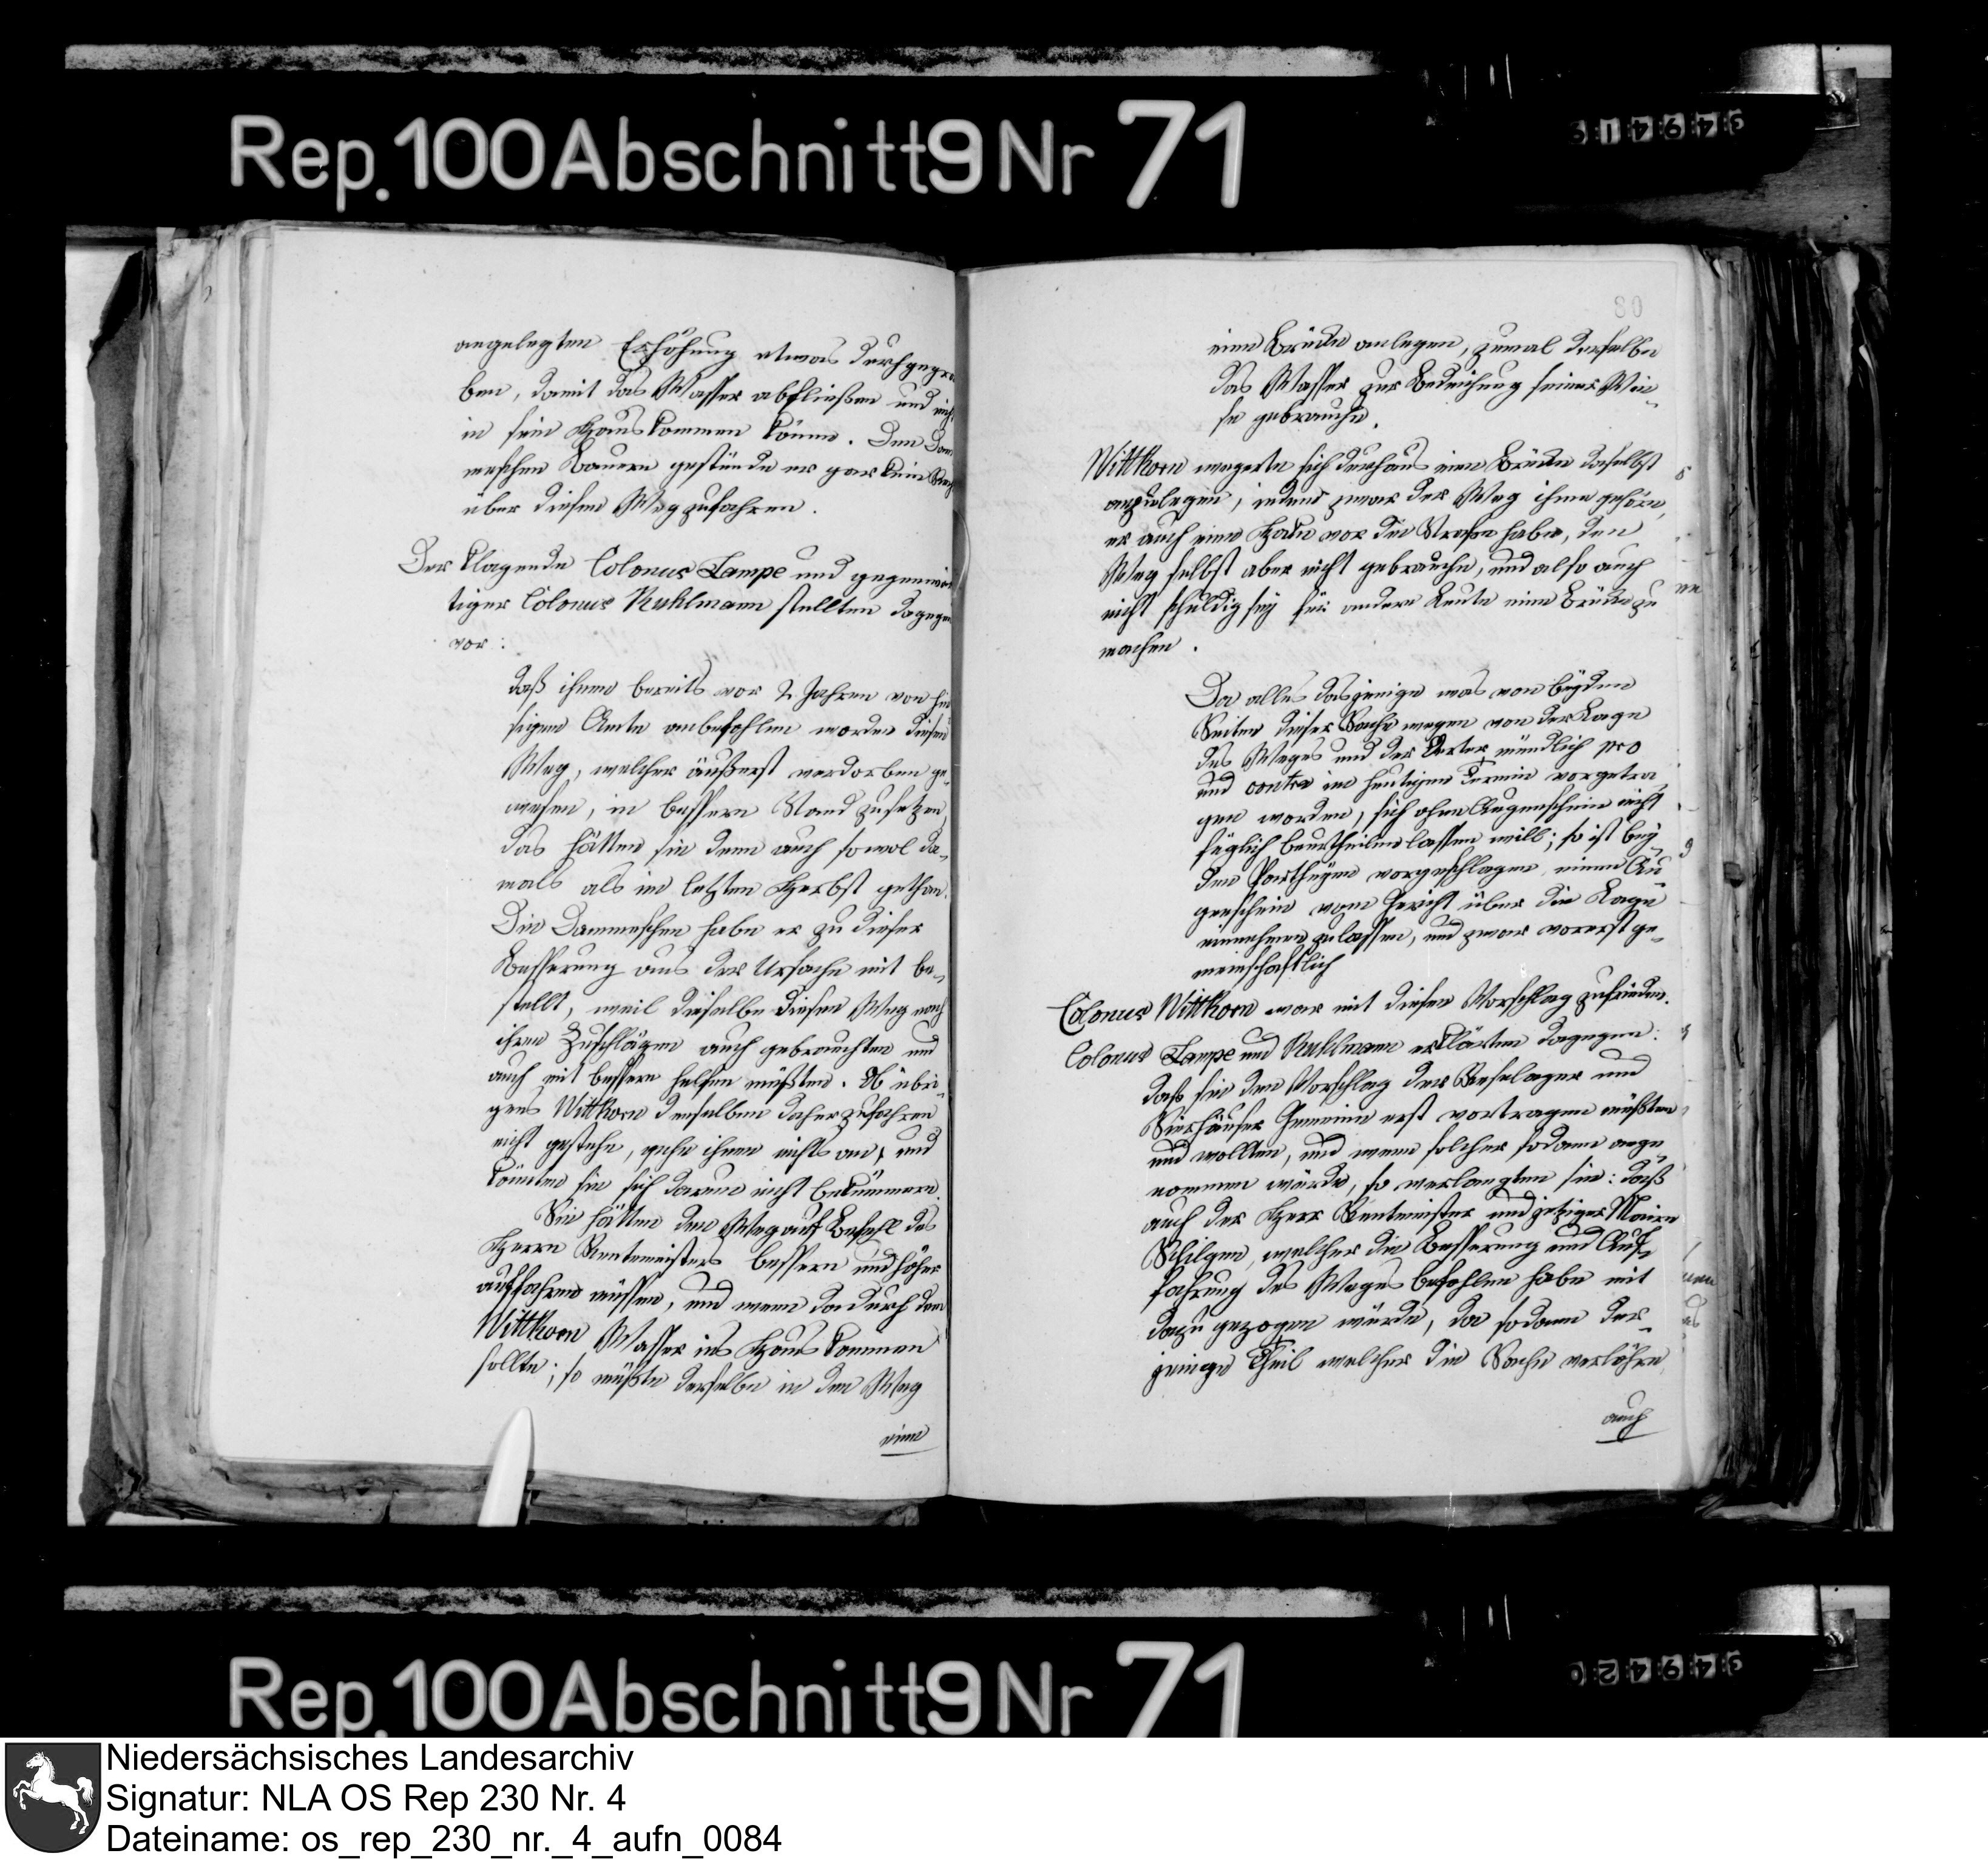 Rep. 100 Abschnitt 9 Nr 71
549419
angelegten Erhöhung etwas durchgegra
ben, damit das Wasser abfließen und nicht
in sein Haus kommen könne. Den Dam
meschen Bauern gestünde er gar kein Recht
über diesen Weg zufahren.
Der klagende Colonus Lampe und gegenwär
tiger Colonus Kuhlmann stellten dagegen
vor:
daß ihnen bereits vor 2 Jahren von hie
sigem Amte anbefohlen worden diesen
Weg, welcher äußerst verdorben ge-
wesen, in bessern Stand zusetzen,
das hätten sie denn auch sowol da-
mals als im letzten Herbst gethan.
Die Dammeschen habe er zu dieser
Besserung aus der Ursache mit be-
stellt, weil dieselbe diesen Weg nach
ihren Zuschlägen auch gebrauchten und
auch mit bessern helfen müßten. Ob übri-
gens Wittkorn denselben daher zufahren
nicht gestehe, gehe ihnen nichts an, und
könnten sie sich darum nicht bekümmern.
Sie hätten den Weg auf Befehl des
Herrn Rentemeisters bessern und höher
auffahren müssen, und wenn dadurch dem
Wittkorn Wasser ins Haus kommen
sollte; so müßte derselbe in den Weg
eine
80
eine Brücke anlegen, zumal derselbe
das Wasser zur Bedeichung seiner Wie-
se gebrauche.
Wittkorn wegerte sich durchaus eine Brücke daselbst
anzulegen, indem zwar der Weg ihm gehöre,
er auch eine Hecke vor der Straße habe, den
Weg selbst aber nicht gebrauche, und also auch
nicht schuldig sey für andere Leute eine Brücke zu
machen.
Da alles dasjenige was von beyden
Seiten dieser Sache wegen von der Lage
des Weges und der Oerter mündlich pro
und contra im heutigen Termin vorgetra
gen worden, sich ohne Augenschein nicht
füglich beurtheilen lassen will; so ist bey
den Partheyen vorgeschlagen, einen Au
genschein vom Gericht über die Lage
einnehmen zu lassen, und zwar vorerst ge-
meinschaftlich
Colonus Wittkorn war mit diesem Vorschlag zufrieden.
Colonus Lampe und Kuhlmann erklärten dagegen:
daß sie den Vorschlag der Rieselager und
Vierhäuser Gemeine erst vortragen müßten
und wollten, und wenn solcher sodann ange-
nommen würde, so verlangten sie: daß
auch der Herr Rentemeister und jetziger Maire
Schilgen, welcher die Besserung und Auf-
fahrung des Weges befohlen habe mit
dazu gezogen würde, da sodann der-
jenige Theil welcher die Sache verlöhre,
auch
Rep. 100 Abschnitt 9 Nr 71
549420
Niedersächsisches Landesarchiv
Signatur: NLA OS Rep 230 Nr. 4
Dateiname: os_rep_230_nr._4_aufn_0084